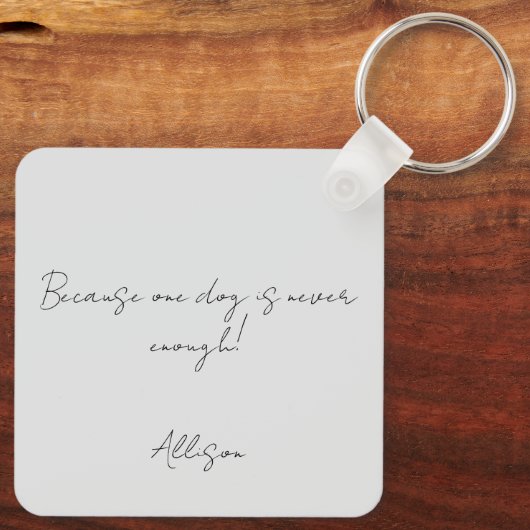 Because one dog is never
enough!
Allison